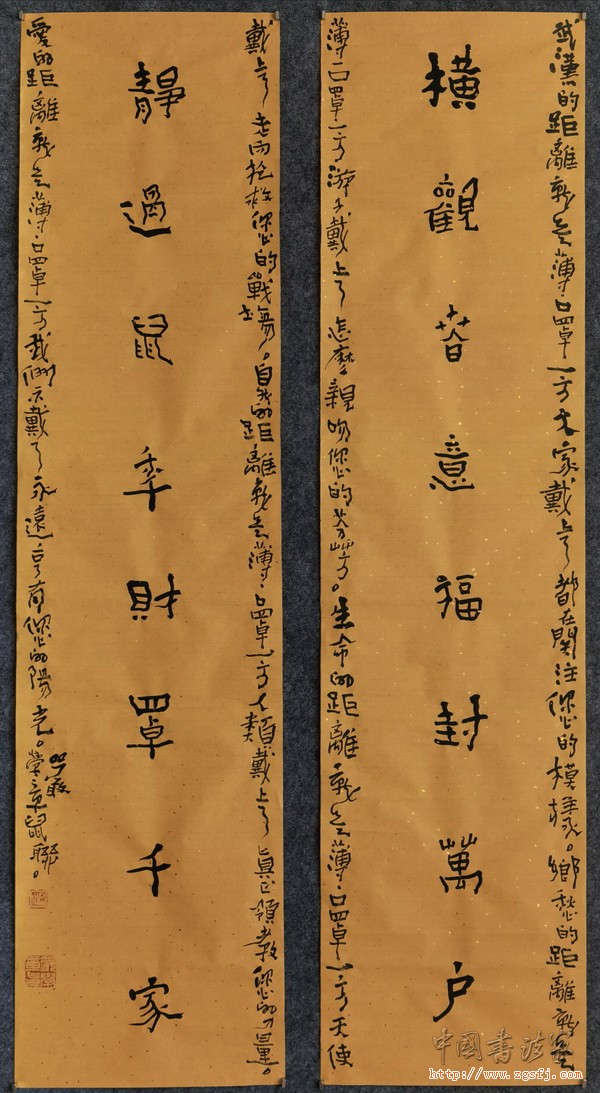 武漢的距離就是薄薄口罩一方大家戴上了都在關注您的模樣。鄉愁的距離就是
橫觀春意福封萬戶
薄薄口罩一方游子戴上了怎麼親吻您的芬芳。生命的距離就是薄薄口罩一方天使
戴上了走向搶救您的戰場。自然的距離就是薄薄口罩一方人類戴上了真正領教您的力量。
靜過鼠年財罩千家
愛的距離就是薄薄口罩一方我們不戴了永遠享有您的陽光。鼠聯。
中國書法
http://www.zgsfj.com